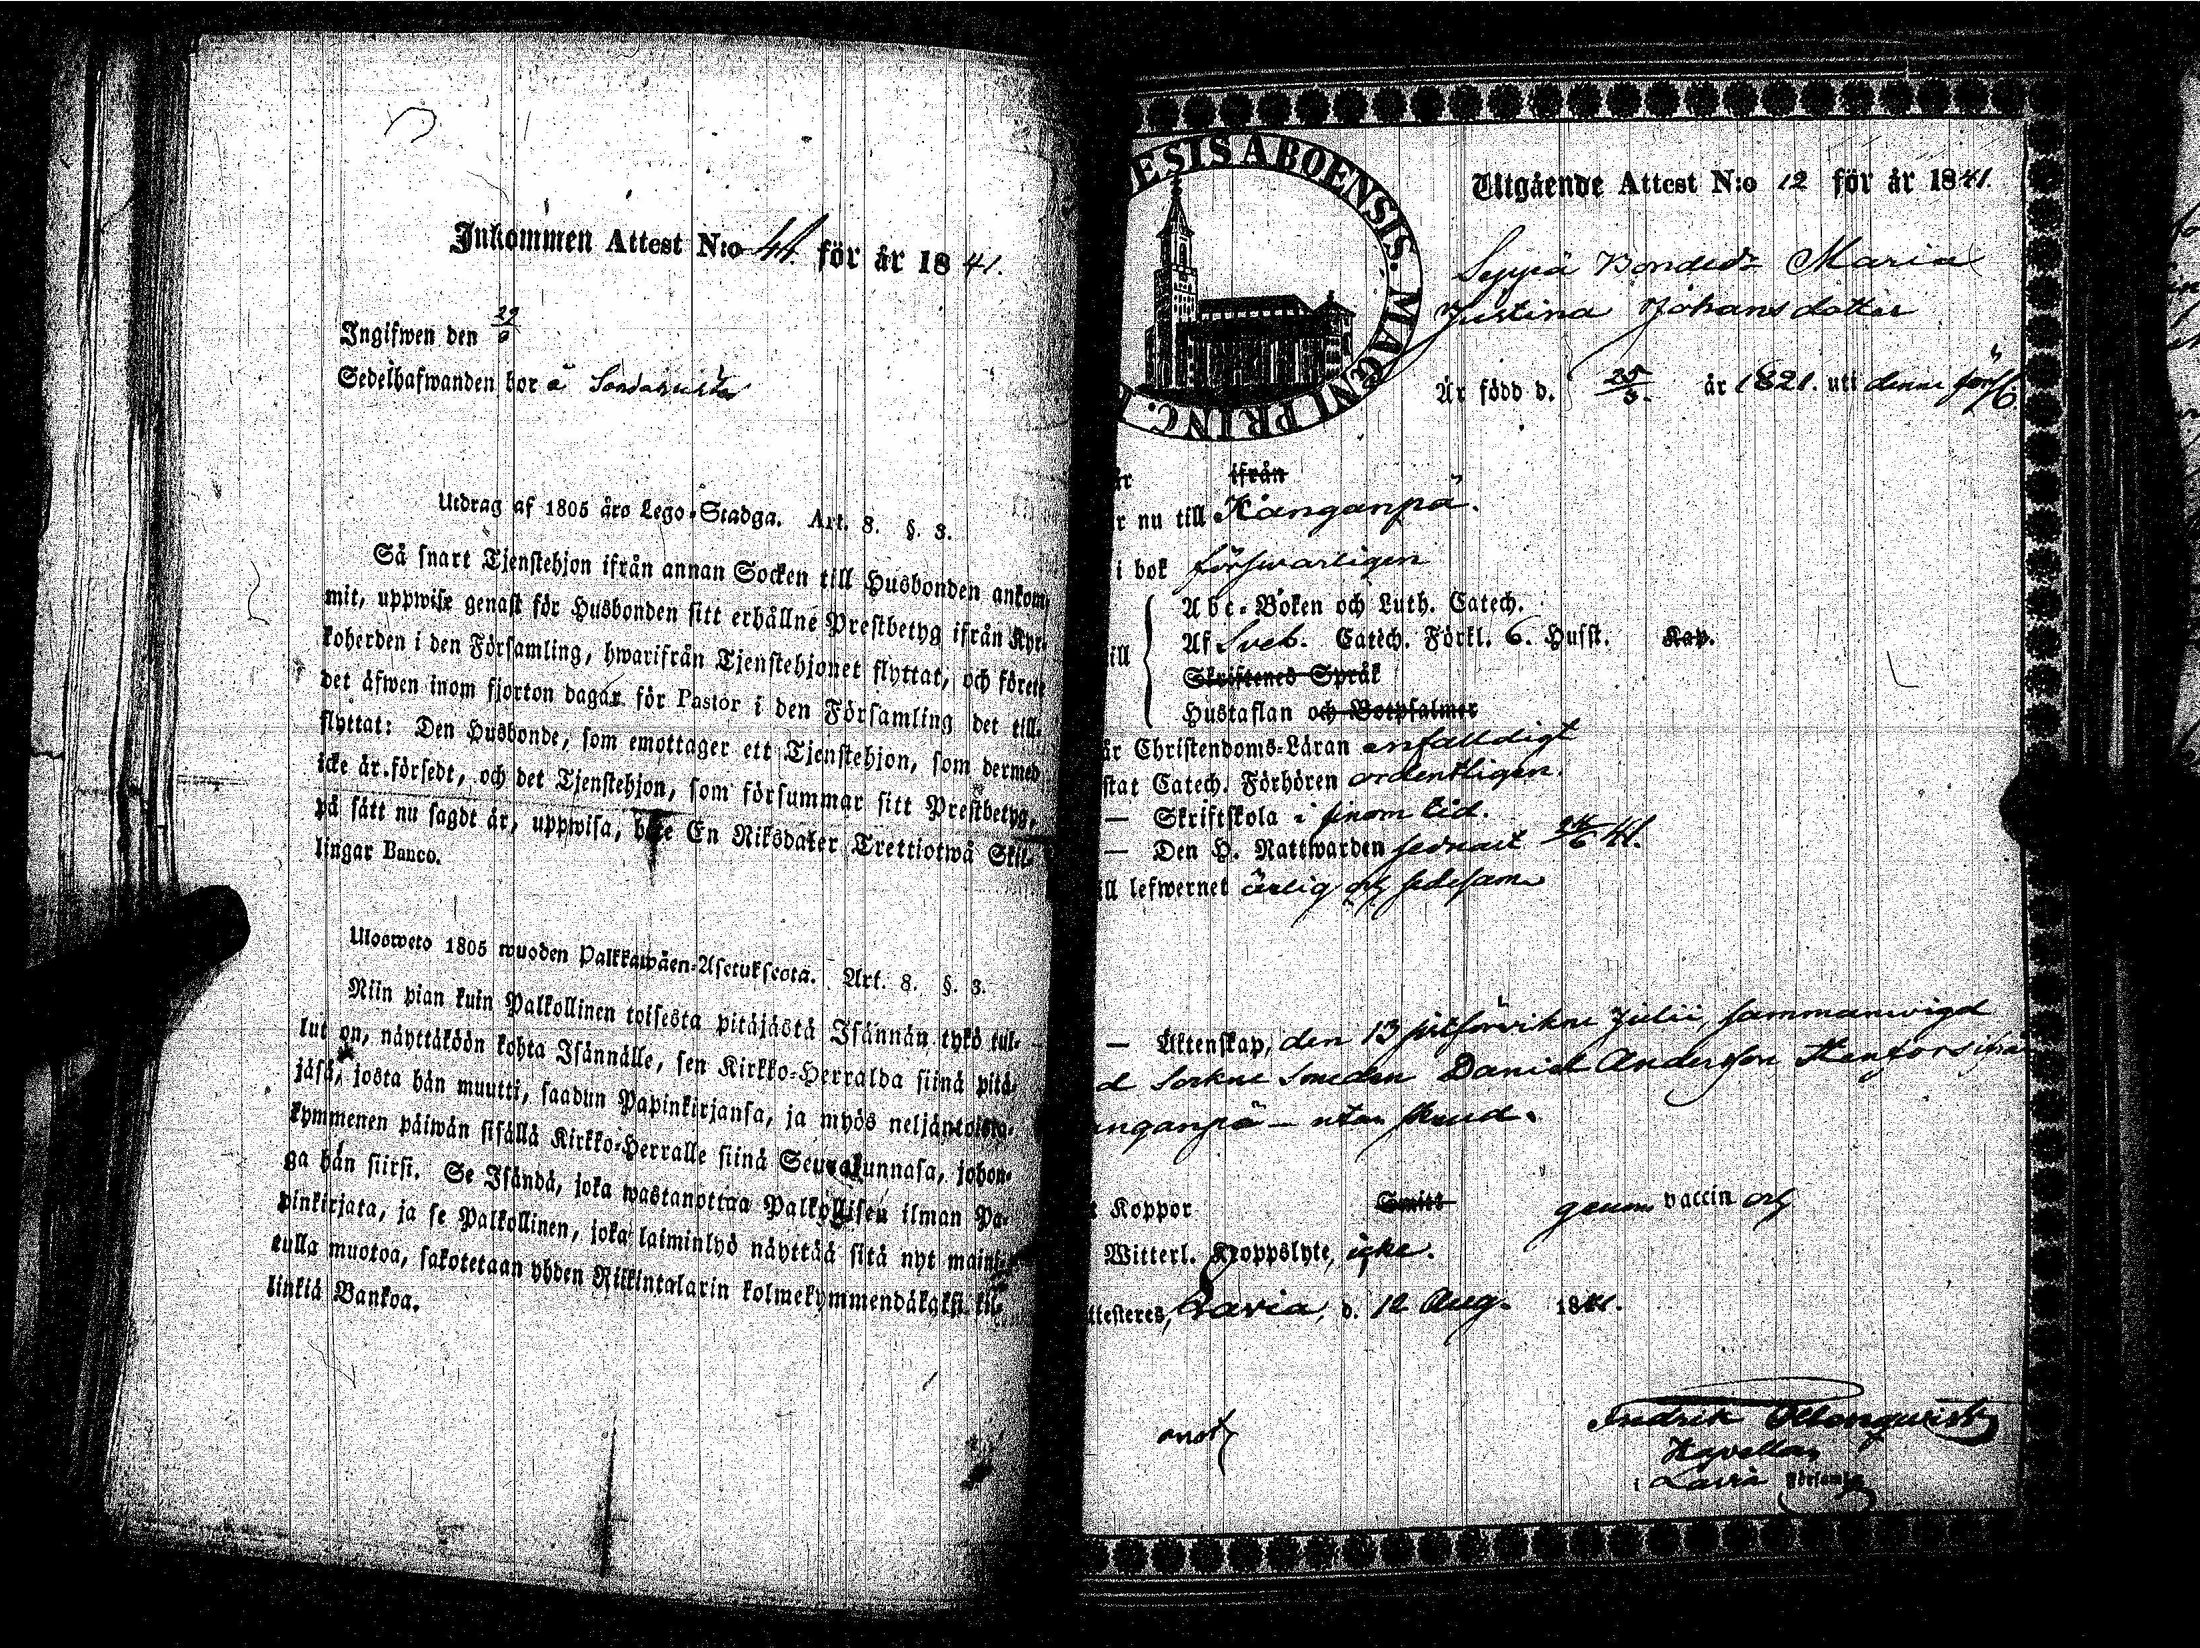 Inkommen Attest N:o 44. för år 1841.
Ingifwen den 29/8
Sedelhafwanden bor å
Utdrag af 1805 års Lego-Stadga. Art. 8. §. 3.
Så snart Tjenstehjon ifrån annan Socken till Husbonden ankom-
mit, uppwise genast för Husbonden sitt erhållne Prestbetyg ifrån Kyr-
koherden i den Församling, hwarifrån Tjenstehjonet flyttat, och förete
det äfwen inom fjorton dagar för Pastor i den Församling det till-
flyttat: Den Husbonde, som emottager ett Tjenstehjon, som dermed
icke är försedt, och det Tjenstehjon, som försummar sitt Prestbetyg,
på sätt nu sagdt är, uppwisa, böte En Riksdaler Trettiotwå Skil-
lingar Banco.
Ulosweto 1805 wuoden Palkkawäen-Asetuksesta. Art. 8. §. 3.
Niin pian kuin Palkollinen toisesta pitäjästä Isännän tykö tul-
lut on, näyttäköön kohta Isännälle, sen Kirkko-Herralda siinä pitä-
jäsä, josta hän muutti, saadun Papinkirjansa, ja myös neljäntoista-
kymmenen päiwän sisällä Kirkko-Herralle siinä Seurakunnasa, johon-
ga hän siirsi. Se Isändä, joka wastanottaa Palkollisen ilman Pa-
pinkirjata, ja se Palkollinen, joka laiminlyö näyttää sitä nyt maini-
tulla muotoa, sakotetaan yhden Riikintalarin kolmekymmendäkaksi kil-
linkiä Bankoa.
ESIS ABOENSIS. MAGNI PRINC.
Utgående Attest N:o 12 för år 1841.
Seppä Bondedr Maria
Justina Johansdotter
Är född d. 25/3. år 1821. uti denne förs.
är ifrån
r nu till Kånganpä.
i bok försvarligen
ill
Abc-Boken och Luth. Catech.
Af Sveb. Catech. Förkl. 6. Husst. Kap.
Skriftenes Språk
Hustaflan och Botpsalmer
är Christendoms-Läran enfalldigt
stat Catech. Förhören ordentligen.
— Skriftskola i sinom tid.
— Den H. Nattwarden sednast 24/6 41.
ill lefwernet ärlig och sedesam
— Äktenskap, den 13 sistförvikne Julii, sammanvigd
d Sockne Smeden Daniel Andersson Stenfors ifrån
anganpä – utan
Koppor Smitt genom vaccin
Witterl. Kroppslyte, icke.
ttesteres, Lavia, d. 12 Aug. 1841.
Fredrik
Kapellan
i Lavia Församl.